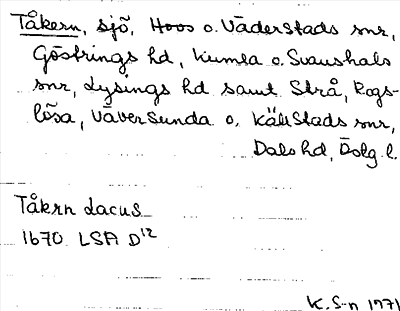 Tåkern, sjö, Hoos o. Väderstads snr,
Göstrings hd, Kumla o. Svanshals
snr, Lysings hd samt Strå, Rogs-
lösa, Väversunda o. Källstads snr,
Dals hd, Ög l.
Tåkrn Lacus
1670 LSA D12
K. S-n 1971